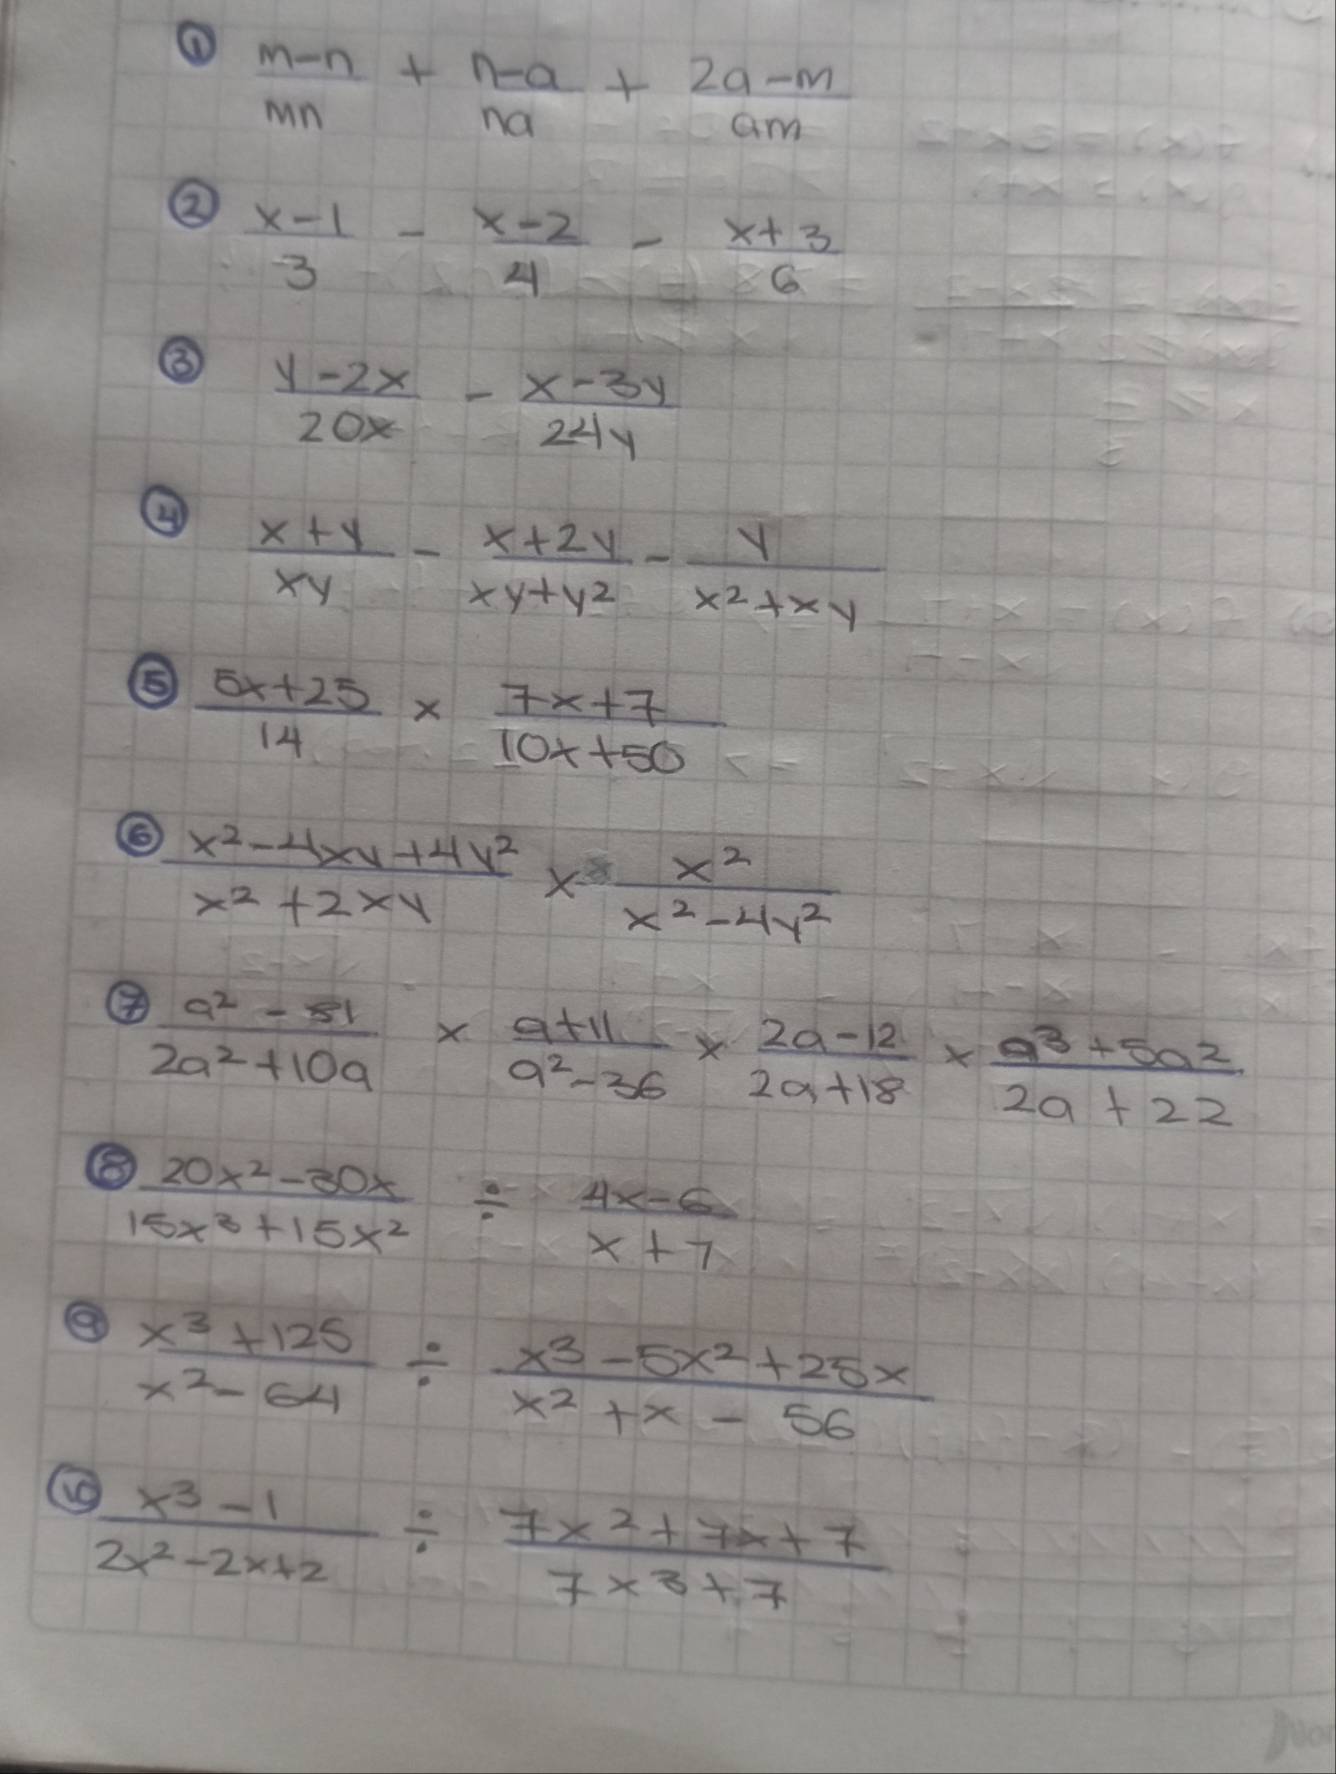 ① (m-n)/mn + (n-a)/na + (2a-m)/am
② (x-1)/3 - (x-2)/4 - (x+3)/6
③ (y-2x)/20x - (x-3y)/24y
④ (x+y)/xy - (x+2y)/(xy+y²) - y/(x²+xy)
⑤ (5x+25)/14 × (7x+7)/(10x+50)
⑥ (x²-4xy+4y²)/(x²+2xy) × x²/(x²-4y²)
⑦ (a²-81)/(2a²+10a) × (a+11)/(a²-36) × (2a-12)/(2a+18) × (a³+5a²)/(2a+22)
⑧ (20x²-30x)/(15x³+15x²) ÷ (4x-6)/(x+7)
⑨ (x³+125)/(x²-64) ÷ (x³-5x²+25x)/(x²+x-56)
⑩ (x³-1)/(2x²-2x+2) ÷ (7x²+7x+7)/(7x³+7)